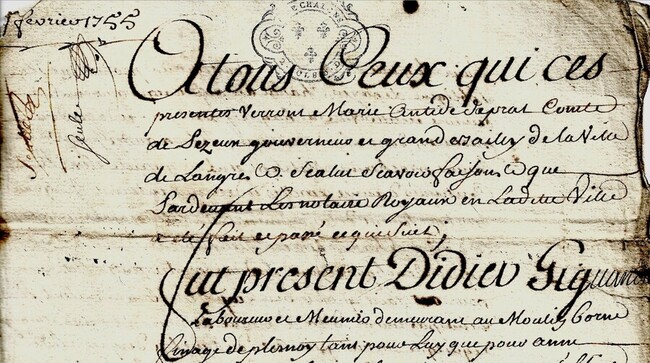 fevrier 1755
DE CHALONS
A tous Ceux qui ces
presentes verront Marie Antide deprat Comte
de Lezeux gouverneur et grand Bailly de la Ville
de Langres Salut Scavoir faisons que
Pardevant Les notaire Royaux en Laditte Ville
a eté fait et passé ce que Suit,
fut present Didier
Laboureur et Meunier demeurant au Moulin
finage de plesnoy tant pour Luy que pour anne